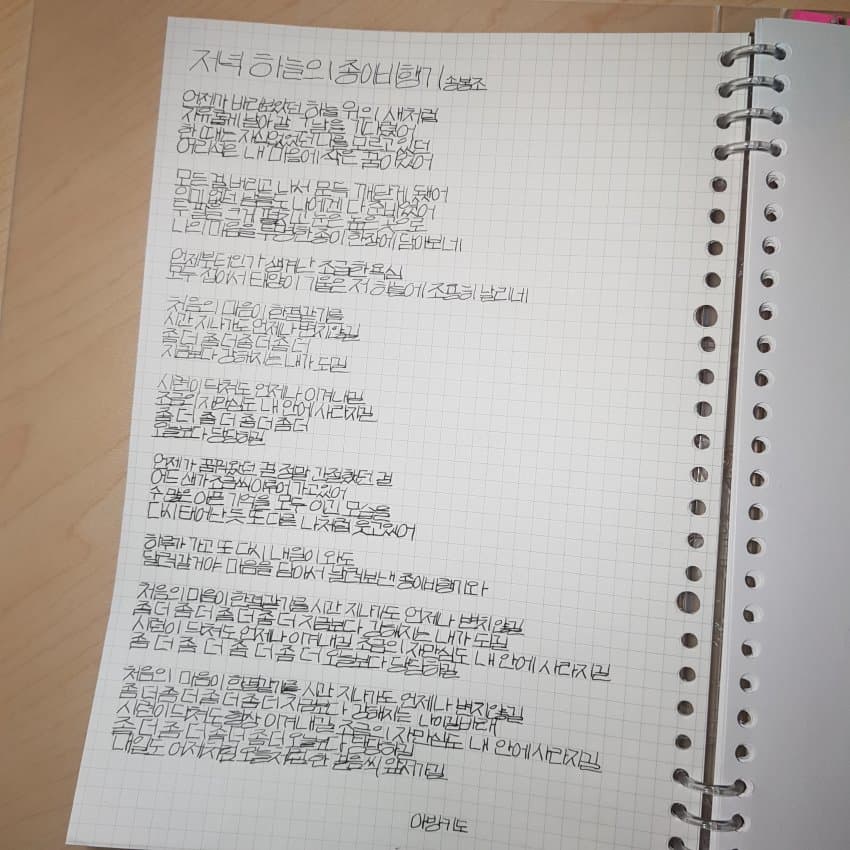 저녁 하늘의 종이비행기 송봉주
언젠가 바라보았던 하늘 위의 새처럼
자유롭게 날아갈 그날을 기다렸어
한 때는 자신있었던 나를 모르고 있던
어리석은 내 마음에 작은 꿈이 있었어
모든 걸 버리고 나서 문득 깨닫게 됐어
웃고 있던 날들도 나에게 다 준비였어
두 팔을 크게 펼치고 눈은 높은 곳으로
나의 마음을 투명한 종이 한장에 담아보네
언제부터인가 생겨난 조급한 욕심
모두 접어서 태양이 기울은 저 하늘에 조용히 날리네
처음의 마음이 한결같기를
시간 지나가도 언제나 변치않길
좀 더 좀 더 좀 더 좀 더
지금보다 강해지는 내가 되길
시련이 닥쳐도 언제나 이겨내길
조금의 자만심도 내 안에 사라지길
좀 더 좀 더 좀 더 좀 더
오늘보다 당당하길
언젠가 꿈꿔왔던 걸 정말 간절했던 걸
어느 샌가 조금씩 이루어 가고있어
수 많은 아픈 기억을 모두 이긴 모습을
다시 태어난 듯 또 다른 나처럼 웃고있어
하루가 가고 또 다시 내일이 와도
달려갈거야 마음을 담아서 날려보낸 종이비행기와
처음의 마음이 한결같기를 시간 지나가도 언제나 변치않길
좀 더 좀 더 좀 더 좀 더 지금보다 강해지는 내가 되길
시련이 닥쳐도 언제나 이겨내길 조금의 자만심도 내 안에 사라지길
좀 더 좀 더 좀 더 좀 더 오늘보다 당당하길
처음의 마음이 한결같기를 시간 지나가도 언제나 변치않길
좀 더 좀 더 좀 더 좀 더 지금보다 강해지는 나이길바래
시련이 닥쳐도 항상 이겨내길 조금의 자만심도 내 안에 사라지길
좀 더 좀 더 좀 더 좀 더 오늘보다 당당하길
내일도 어제처럼 오늘처럼 한 걸음씩 앞서가길
아방키도